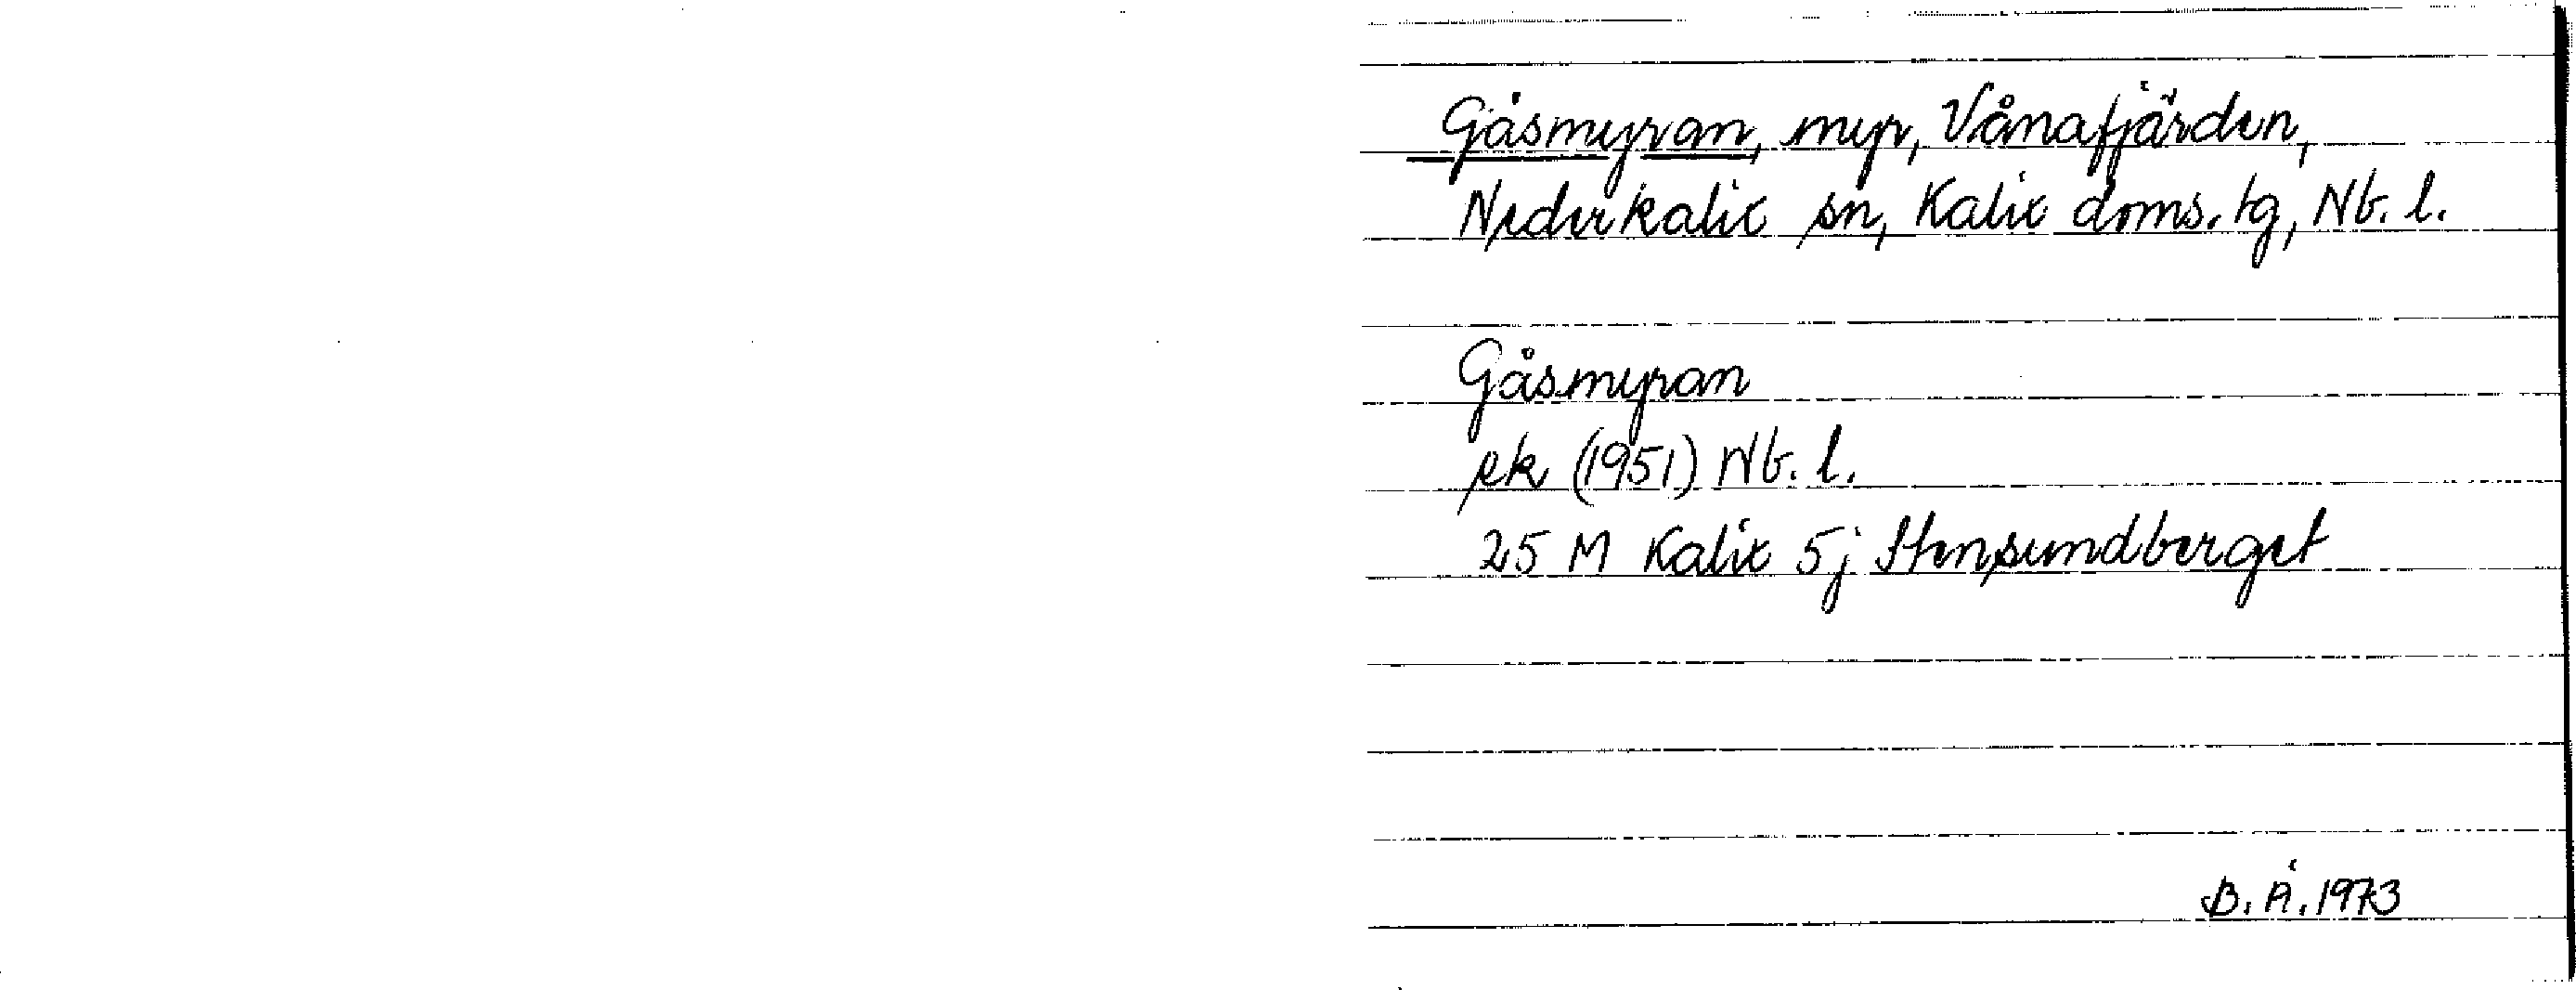 Gåsmyran, myr, Vånafjärden,
Nederkalix sn, Kalix doms. tg, Nb. l.
Gåsmyran
ek (1951) Nb. l.
25 M Kalix 5j Stensundberget
B. Å. 1973